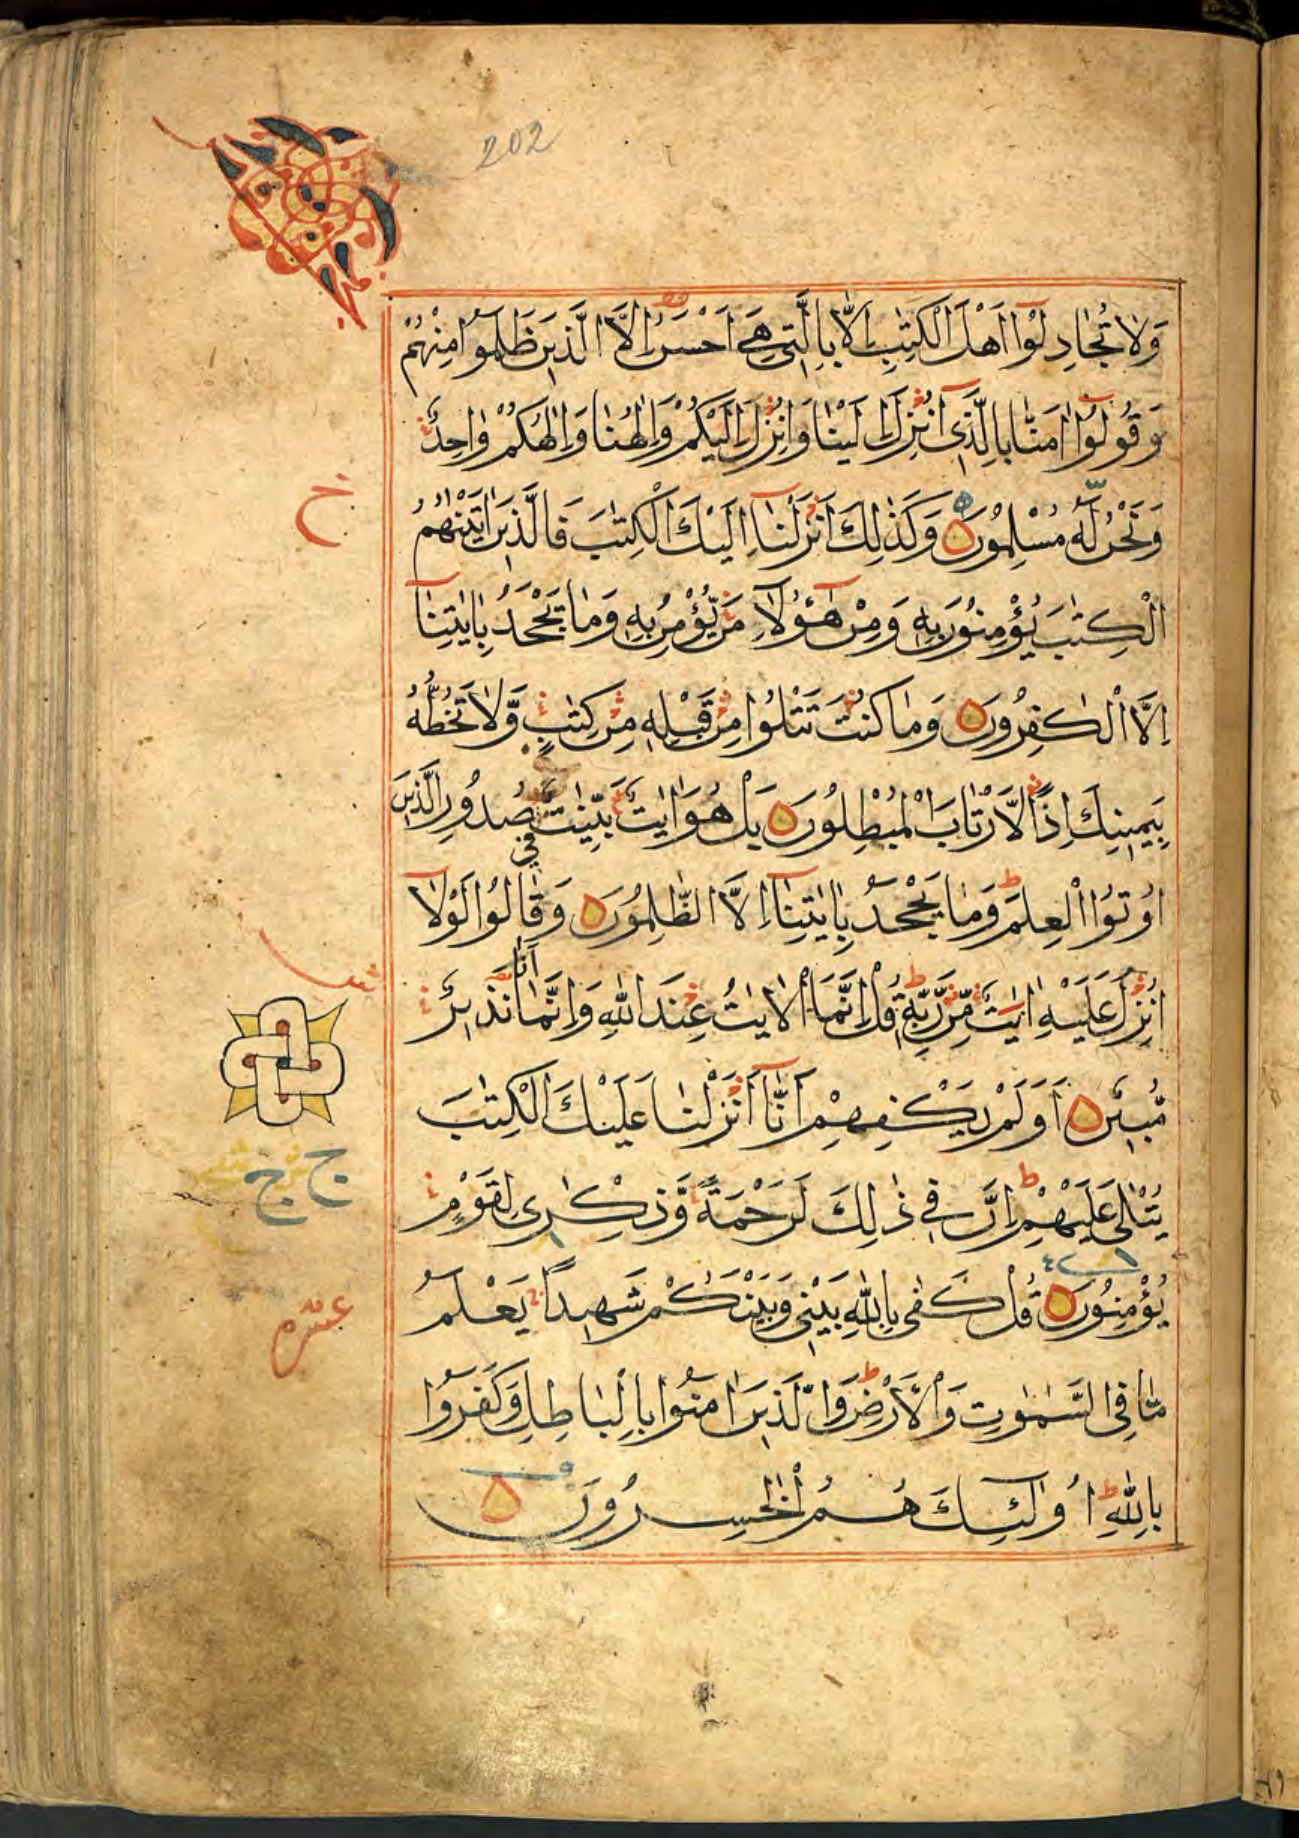 202
وَلَا تُجَادِلُوٓا اَهْلَ الْكِتٰبِ اِلَّا بِالَّتِى هِىَ اَحْسَنُ اِلَّا الَّذِينَ ظَلَمُوا مِنْهُمْ
وَقُولُوٓا اٰمَنَّا بِالَّذِىٓ اُنْزِلَ اِلَيْنَا وَاُنْزِلَ اِلَيْكُمْ وَاِلٰهُنَا وَاِلٰهُكُمْ وَاحِدٌ
وَنَحْنُ لَهُ مُسْلِمُونَ وَكَذٰلِكَ اَنْزَلْنَآ اِلَيْكَ الْكِتٰبَ فَالَّذِينَ اٰتَيْنٰهُمُ
ح
الْكِتٰبَ يُؤْمِنُونَ بِهِ وَمِنْ هٰٓؤُلَآءِ مَنْ يُّؤْمِنُ بِهِ وَمَا يَجْحَدُ بِاٰيٰتِنَآ
اِلَّا الْكٰفِرُونَ وَمَا كُنْتَ تَتْلُوا مِنْ قَبْلِهِ مِنْ كِتٰبٍ وَّلَا تَخُطُّهُ
بِيَمِينِكَ اِذًا لَّارْتَابَ الْمُبْطِلُونَ بَلْ هُوَ اٰيٰتٌ بَيِّنٰتٌ فِى صُدُورِ الَّذِينَ
اُوتُوا الْعِلْمَ وَمَا يَجْحَدُ بِاٰيٰتِنَآ اِلَّا الظّٰلِمُونَ وَقَالُوا لَوْلَآ
اُنْزِلَ عَلَيْهِ اٰيٰتٌ مِّنْ رَّبِّهِ قُلْ اِنَّمَا الْاٰيٰتُ عِنْدَ اللّٰهِ وَاِنَّمَآ اَنَا نَذِيرٌ
مُّبِينٌ اَوَلَمْ يَكْفِهِمْ اَنَّآ اَنْزَلْنَا عَلَيْكَ الْكِتٰبَ
يُتْلٰى عَلَيْهِمْ اِنَّ فِى ذٰلِكَ لَرَحْمَةً وَّذِكْرٰى لِقَوْمٍ
يُؤْمِنُونَ قُلْ كَفٰى بِاللّٰهِ بَيْنِى وَبَيْنَكُمْ شَهِيدًا يَعْلَمُ
مَا فِى السَّمٰوٰتِ وَالْاَرْضِ وَالَّذِينَ اٰمَنُوا بِالْبَاطِلِ وَكَفَرُوا
بِاللّٰهِ اُولٰئِكَ هُمُ الْخٰسِرُونَ